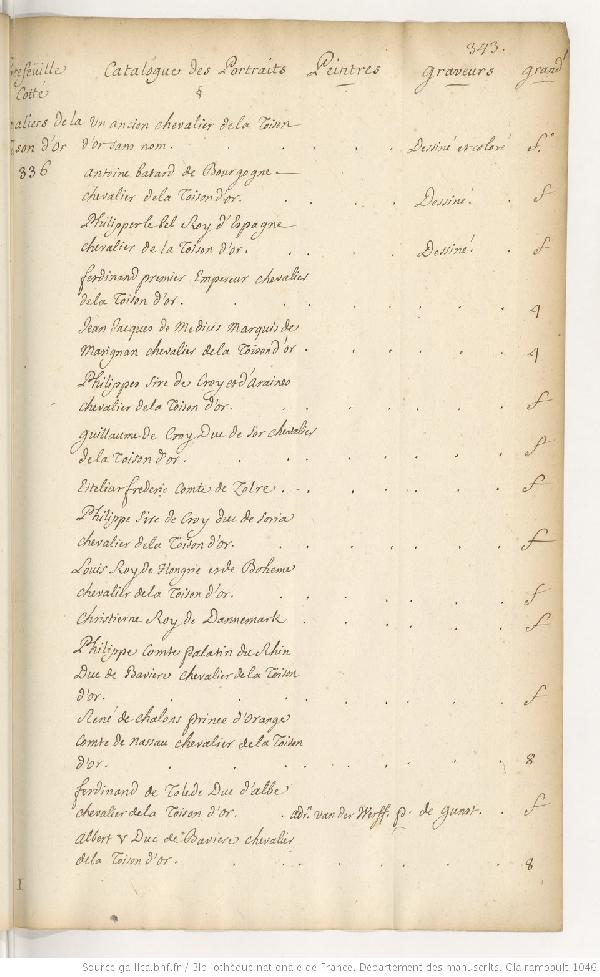 343.
Catalogue des Portraits Peintres graveurs grand.
Cotté
§
aliers de la Un ancien chevalier de la Toison
son d'Or d'or sans nom. Dessiné et coloré f.
336
Antoine batard de Bourgogne
chevalier de la Toison d'or. Dessiné. f
Philippe le bel Roy d'Espagne
chevalier de la Toison d'or. Dessiné. f
ferdinand premier Empereur chevalier
de la Toison d'or. 4
Jean Jacques de Medicis Marquis de
Marignan chevalier de la Toison d'or. 4
Philippes sire de Croy et d'Araines
chevalier de la Toison d'or. f
guillaume de Croy Duc de Sor chevalier
de la Toison d'or. f
frederic Comte de Zolre. f
Philippe sire de Croy duc de Soria
chevalier de la Toison d'or. f
Louis Roy de Hongrie et de Boheme
chevalier de la Toison d'or. f
Christierne Roy de Dannemark f
Philippe Comte palatin du Rhin
Duc de Baviere chevalier de la Toison
d'or. f
René de chalons prince d'Orange
Comte de nassau chevalier de la Toison
d'or. 8
ferdinand de Tolede Duc d'albe
chevalier de la Toison d'or. adr. van der Werff. p. de gunst. f
Albert V Duc de Baviere chevalier
de la Toison d'or. 8
I
Source gallica.bnf.fr / Bibliothèque nationale de France. Département des manuscrits. Clairambault 1046